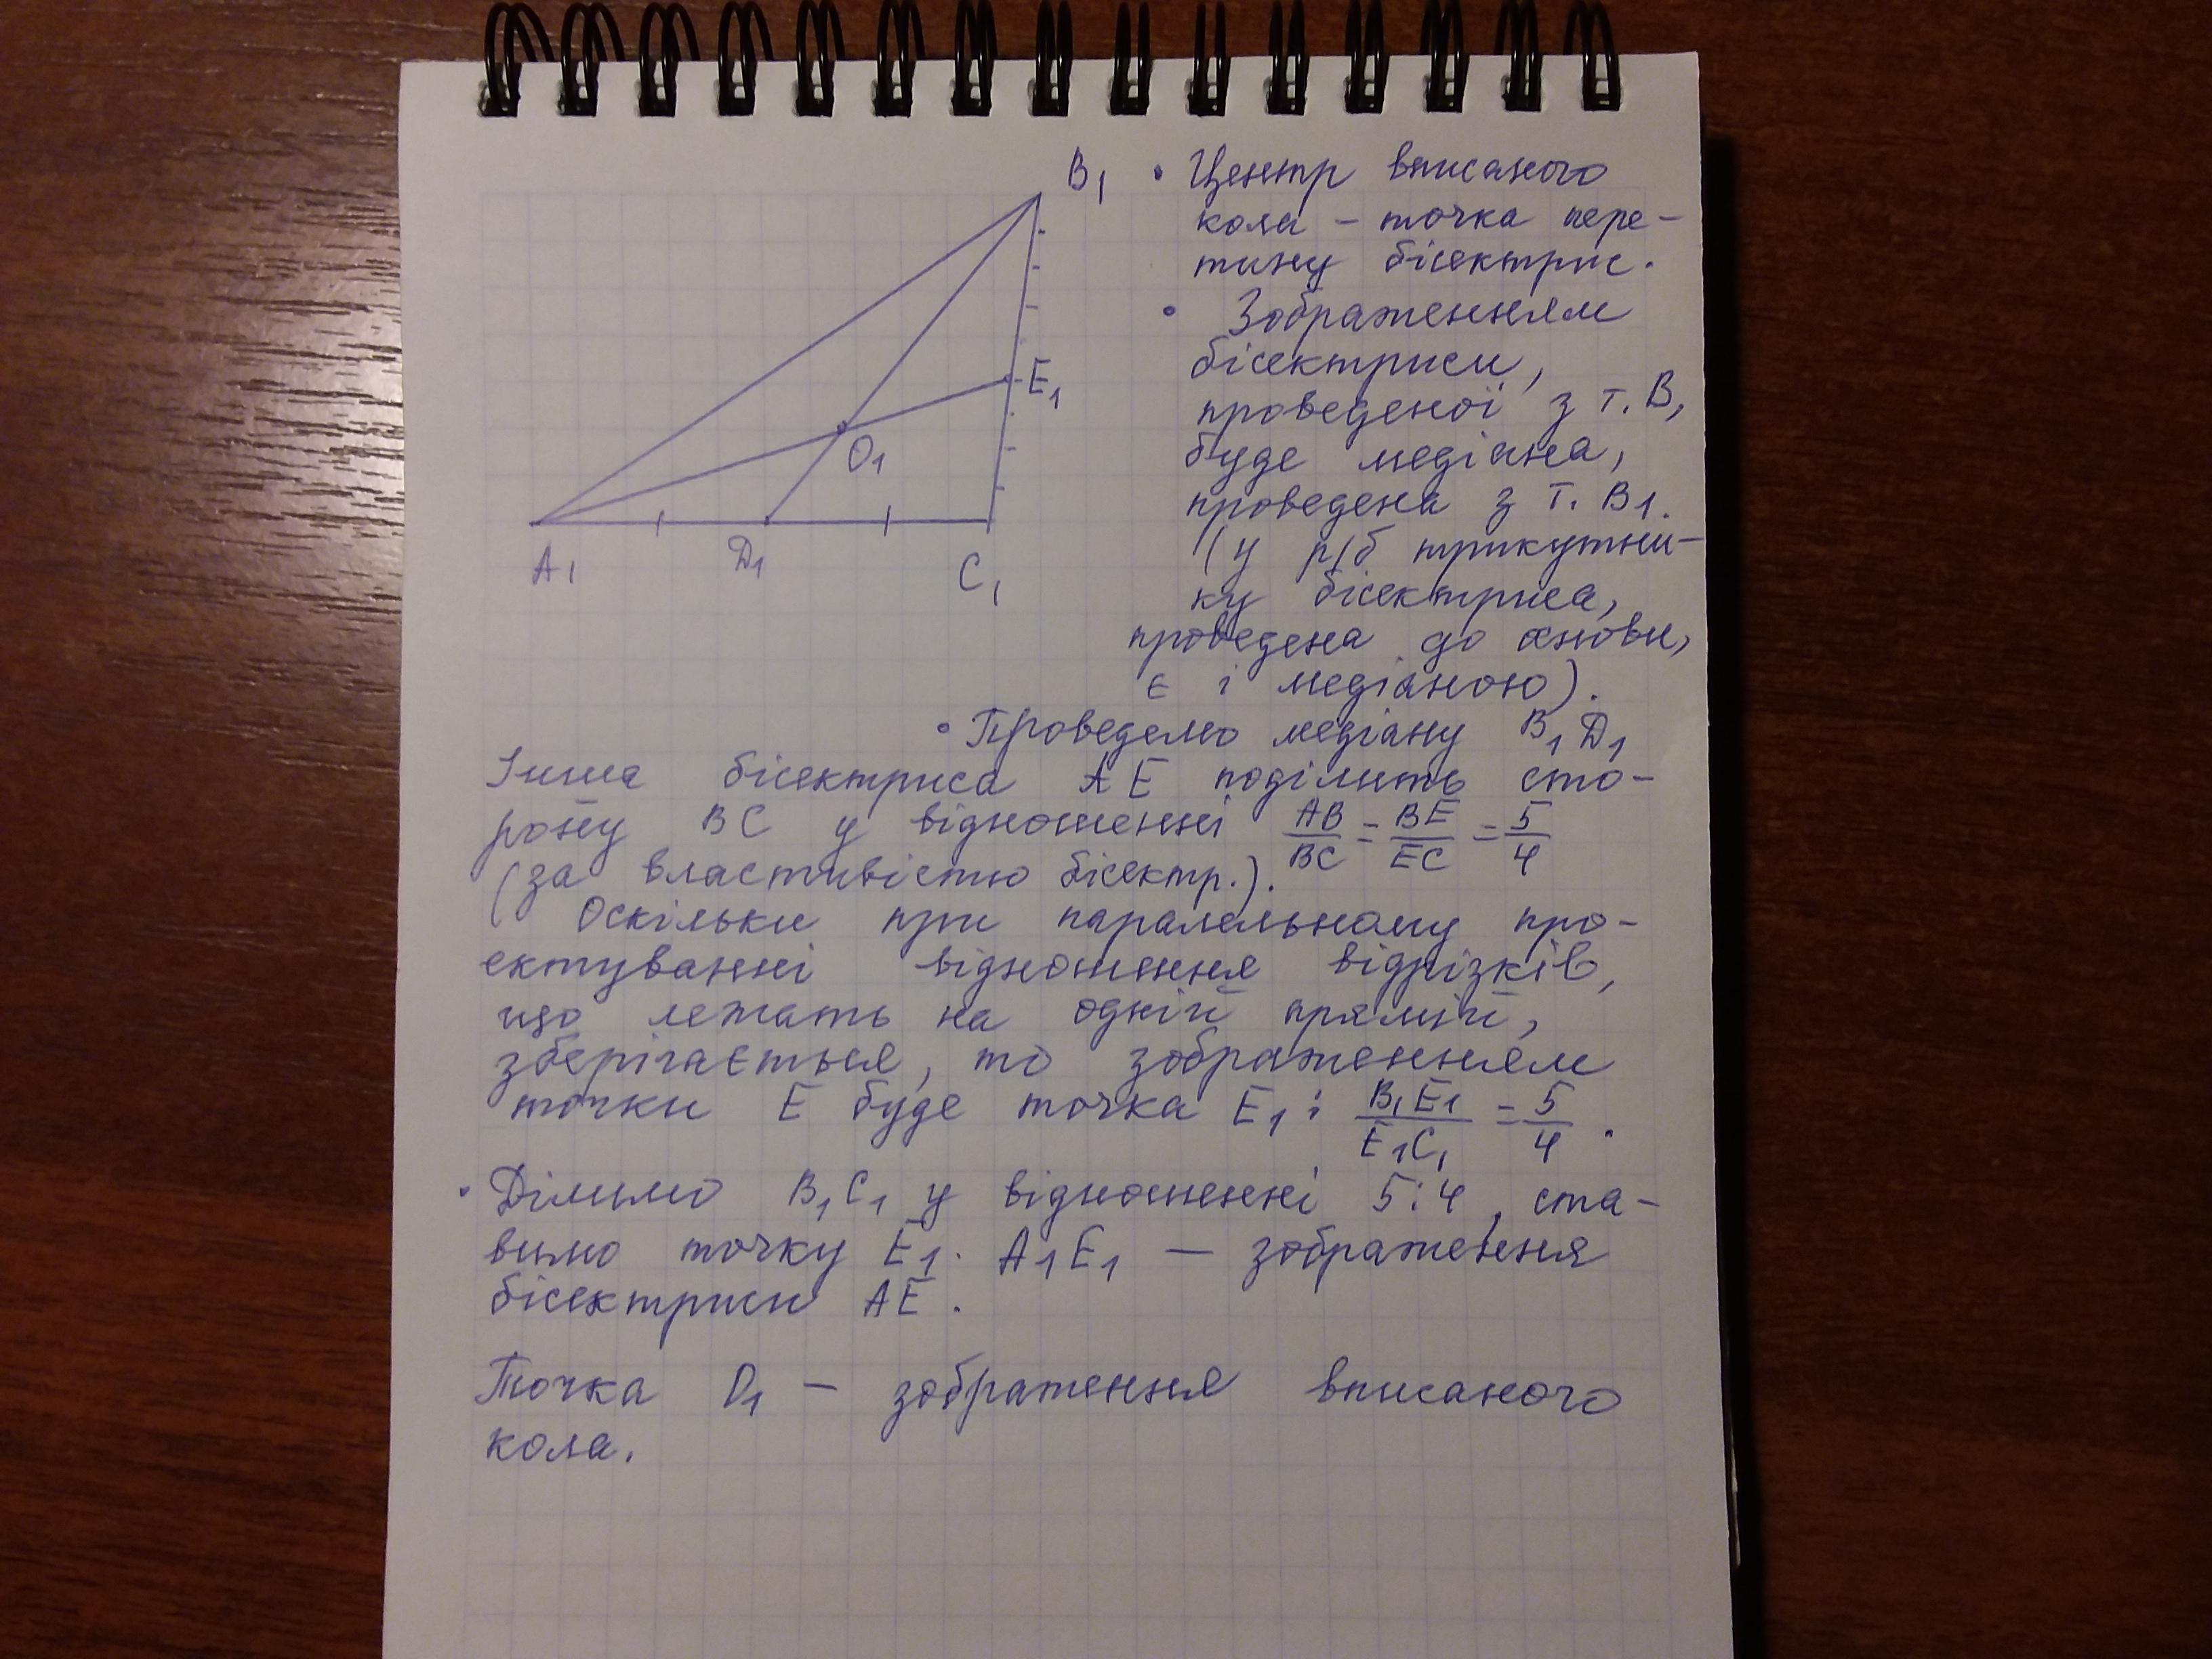 B1
• Центр вписаного
кола – точка пере-
тину бісектрис.
• Зображенням
бісектриси,
проведеної з т. B,
буде медіана,
проведена з т. B1.
(у р/б трикутни-
ку бісектриса,
проведена до основи,
є і медіаною).
E1
O1
A1 D1 C1
• Проведемо медіану B1D1
Інша бісектриса AE поділить сто-
рону BC у відношенні AB/BC = BE/EC = 5/4
(за властивістю бісектр.).
Оскільки при паралельному про-
ектуванні відношення відрізків,
що лежать на одній прямій,
зберігається, то зображенням
точки E буде точка E1: B1E1/E1C1 = 5/4.
• Ділимо B1C1 у відношенні 5:4, ста-
вимо точку E1. A1E1 — зображення
бісектриси AE.
Точка O1 – зображення вписаного
кола.